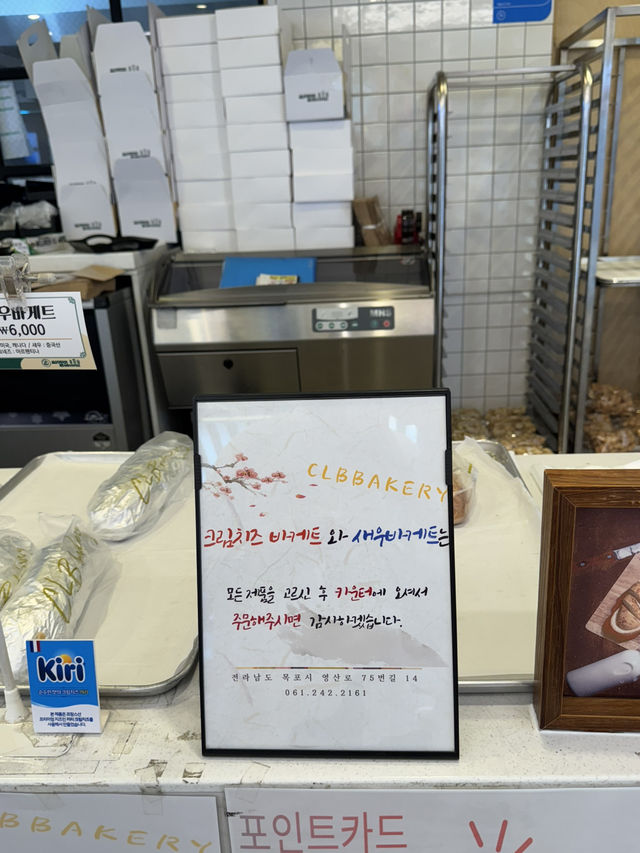 우바게트
₩6,000
CLBBAKERY
크림치즈 바게트 와 새우바게트는
모든 제품을 고르신 후 카운터에 오셔서
주문해주시면 감사하겠습니다.
전라남도 목포시 영산로 75번길 14
061.242.2161
Kiri
BBAKERY
포인트카드